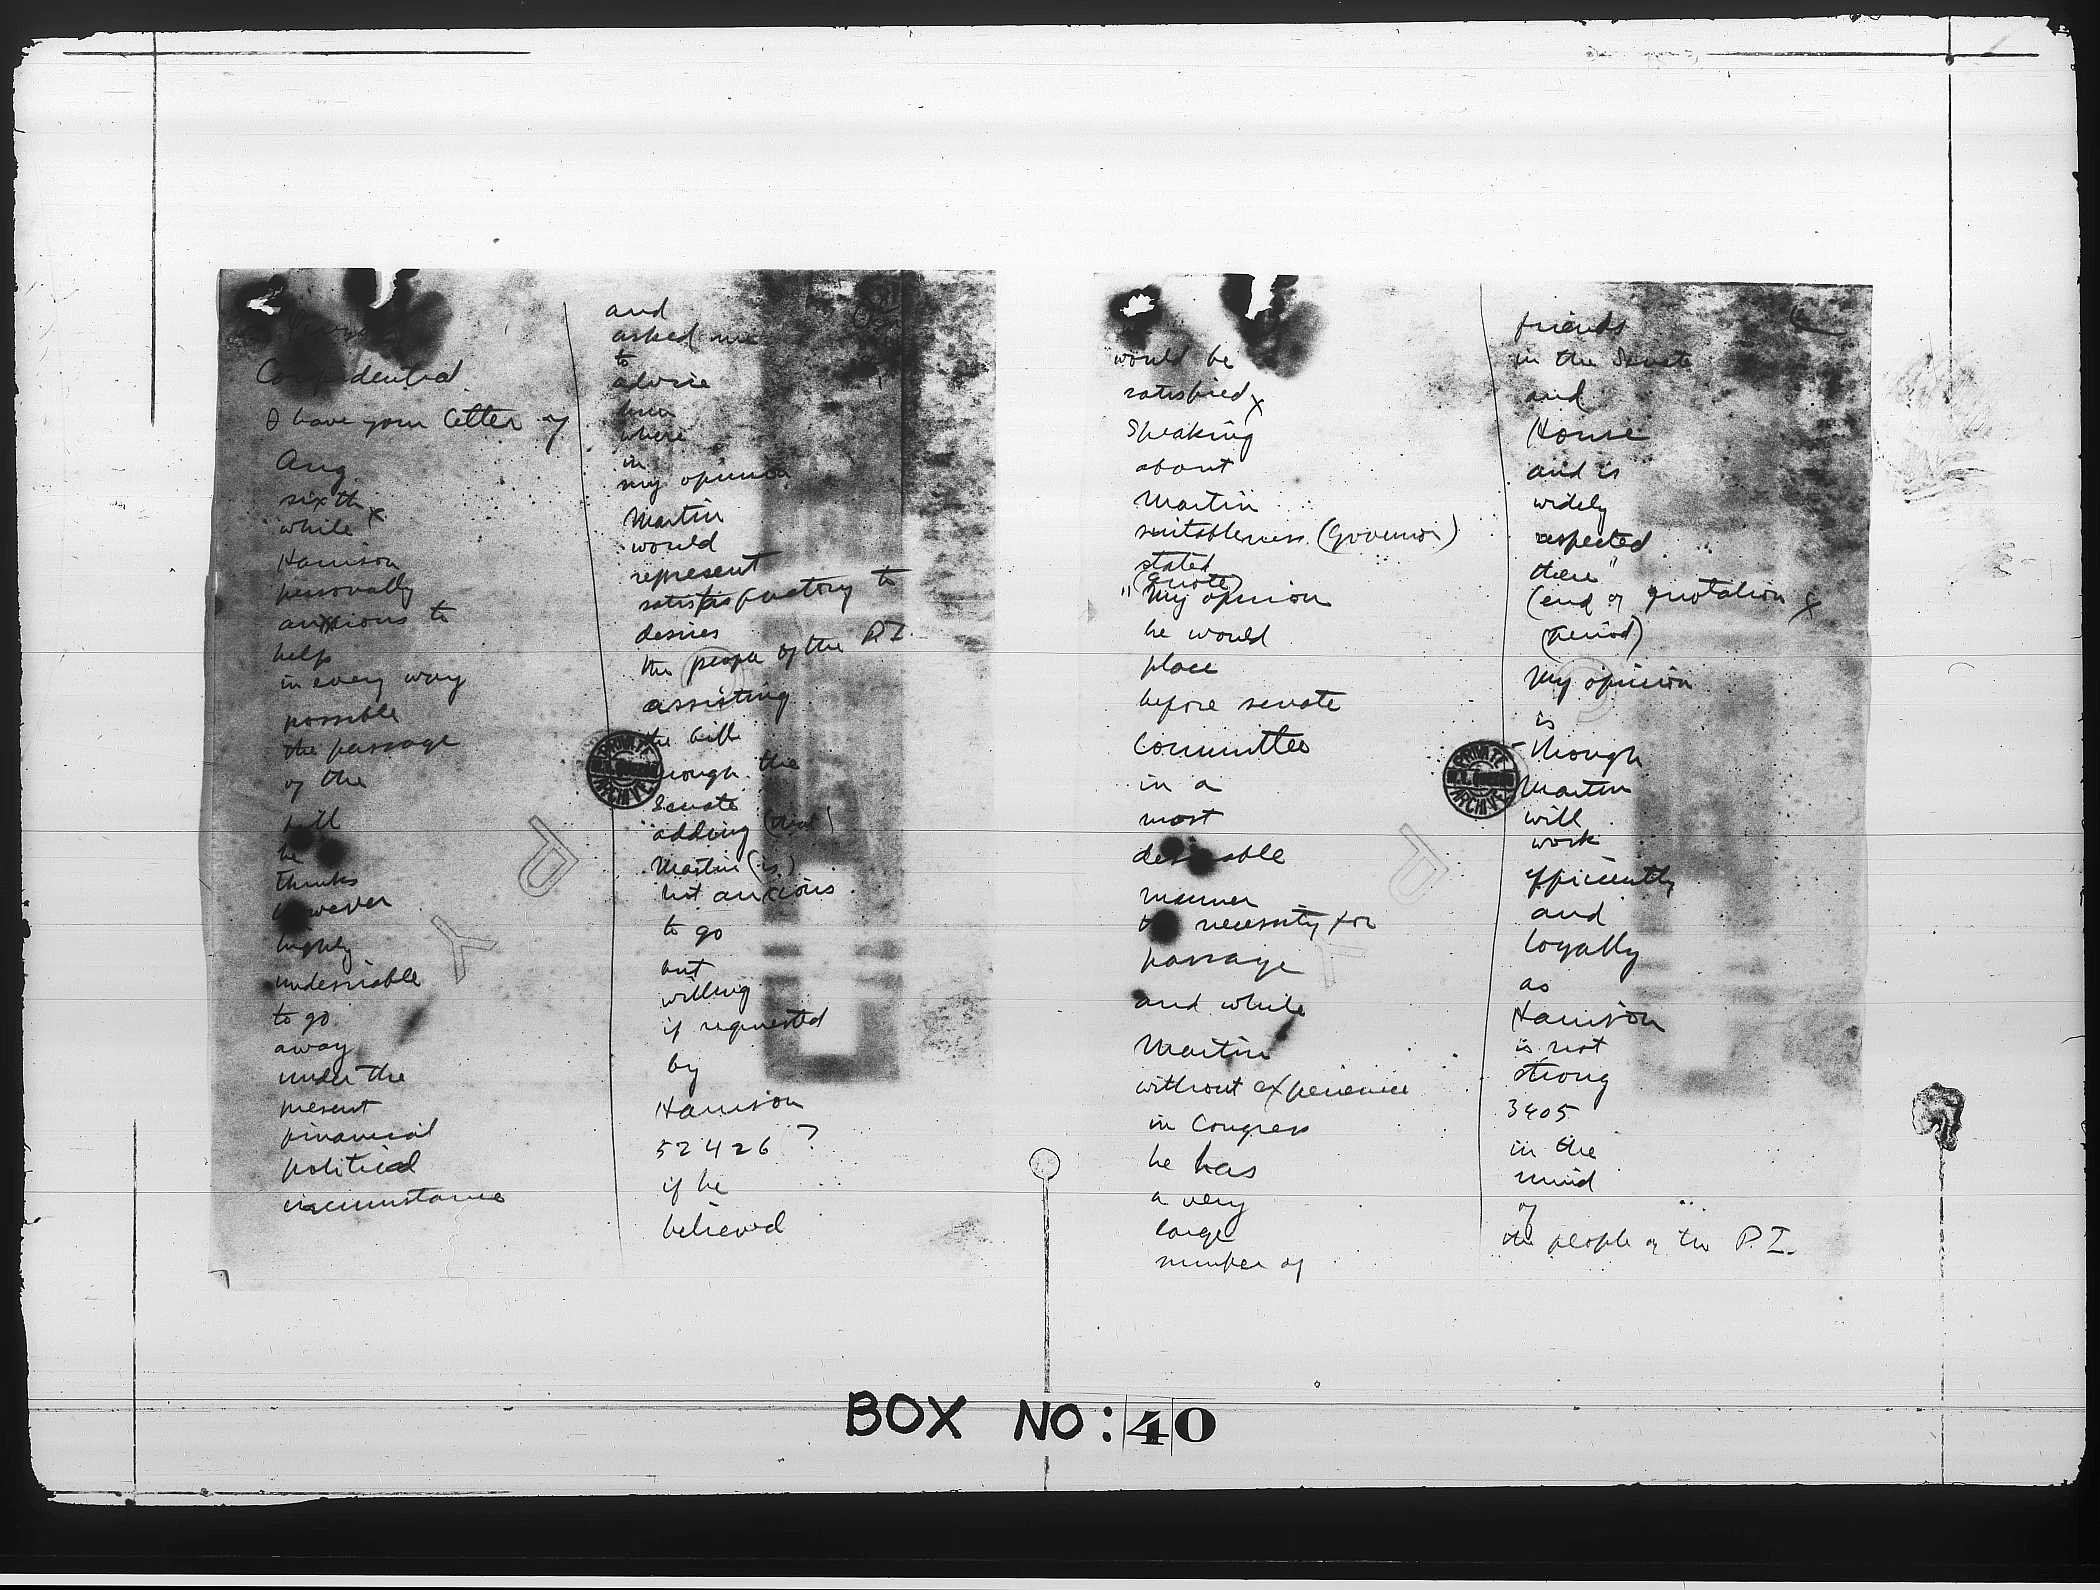 Confidential
I have your letter of
Aug
sixth x
while
Harrison
personally
anxious to
help
in every way
possible
the passage
of the
bill
he
thinks
however
highly
undesirable
to go
away
under the
present
financial
political
circumstance
and
asked me
to
advise
him
where
in
my opinion
Martin
would
represent
satisfactory to
desires
the people of the P.I.
assisting
the bill
through the
Senate
adding (that)
Martin (is)
not anxious
to go
but
willing
if requested
by
Harrison
52426 ?
if he
believed
would be
satisfied x
Speaking
about
Martin
suitableness (Governor)
stated
(quote)
"My opinion
he would
place
before senate
Committee
in a
most
desirable
manner
necessity for
passage
and while
Martin
without experience
in Congress
he has
a very
large
number of
friends
in the Senate
and
House
and is
widely
respected
there"
(end of quotation x
(period)
My opinion
is
though
Martin
will
work
efficiently
and
loyally
as
Harrison
is not
strong
3405
in the
mind
of
the people of the P.I.
PRIVATE
ARCHIVES
PRIVATE
ARCHIVES
BOX NO: 40